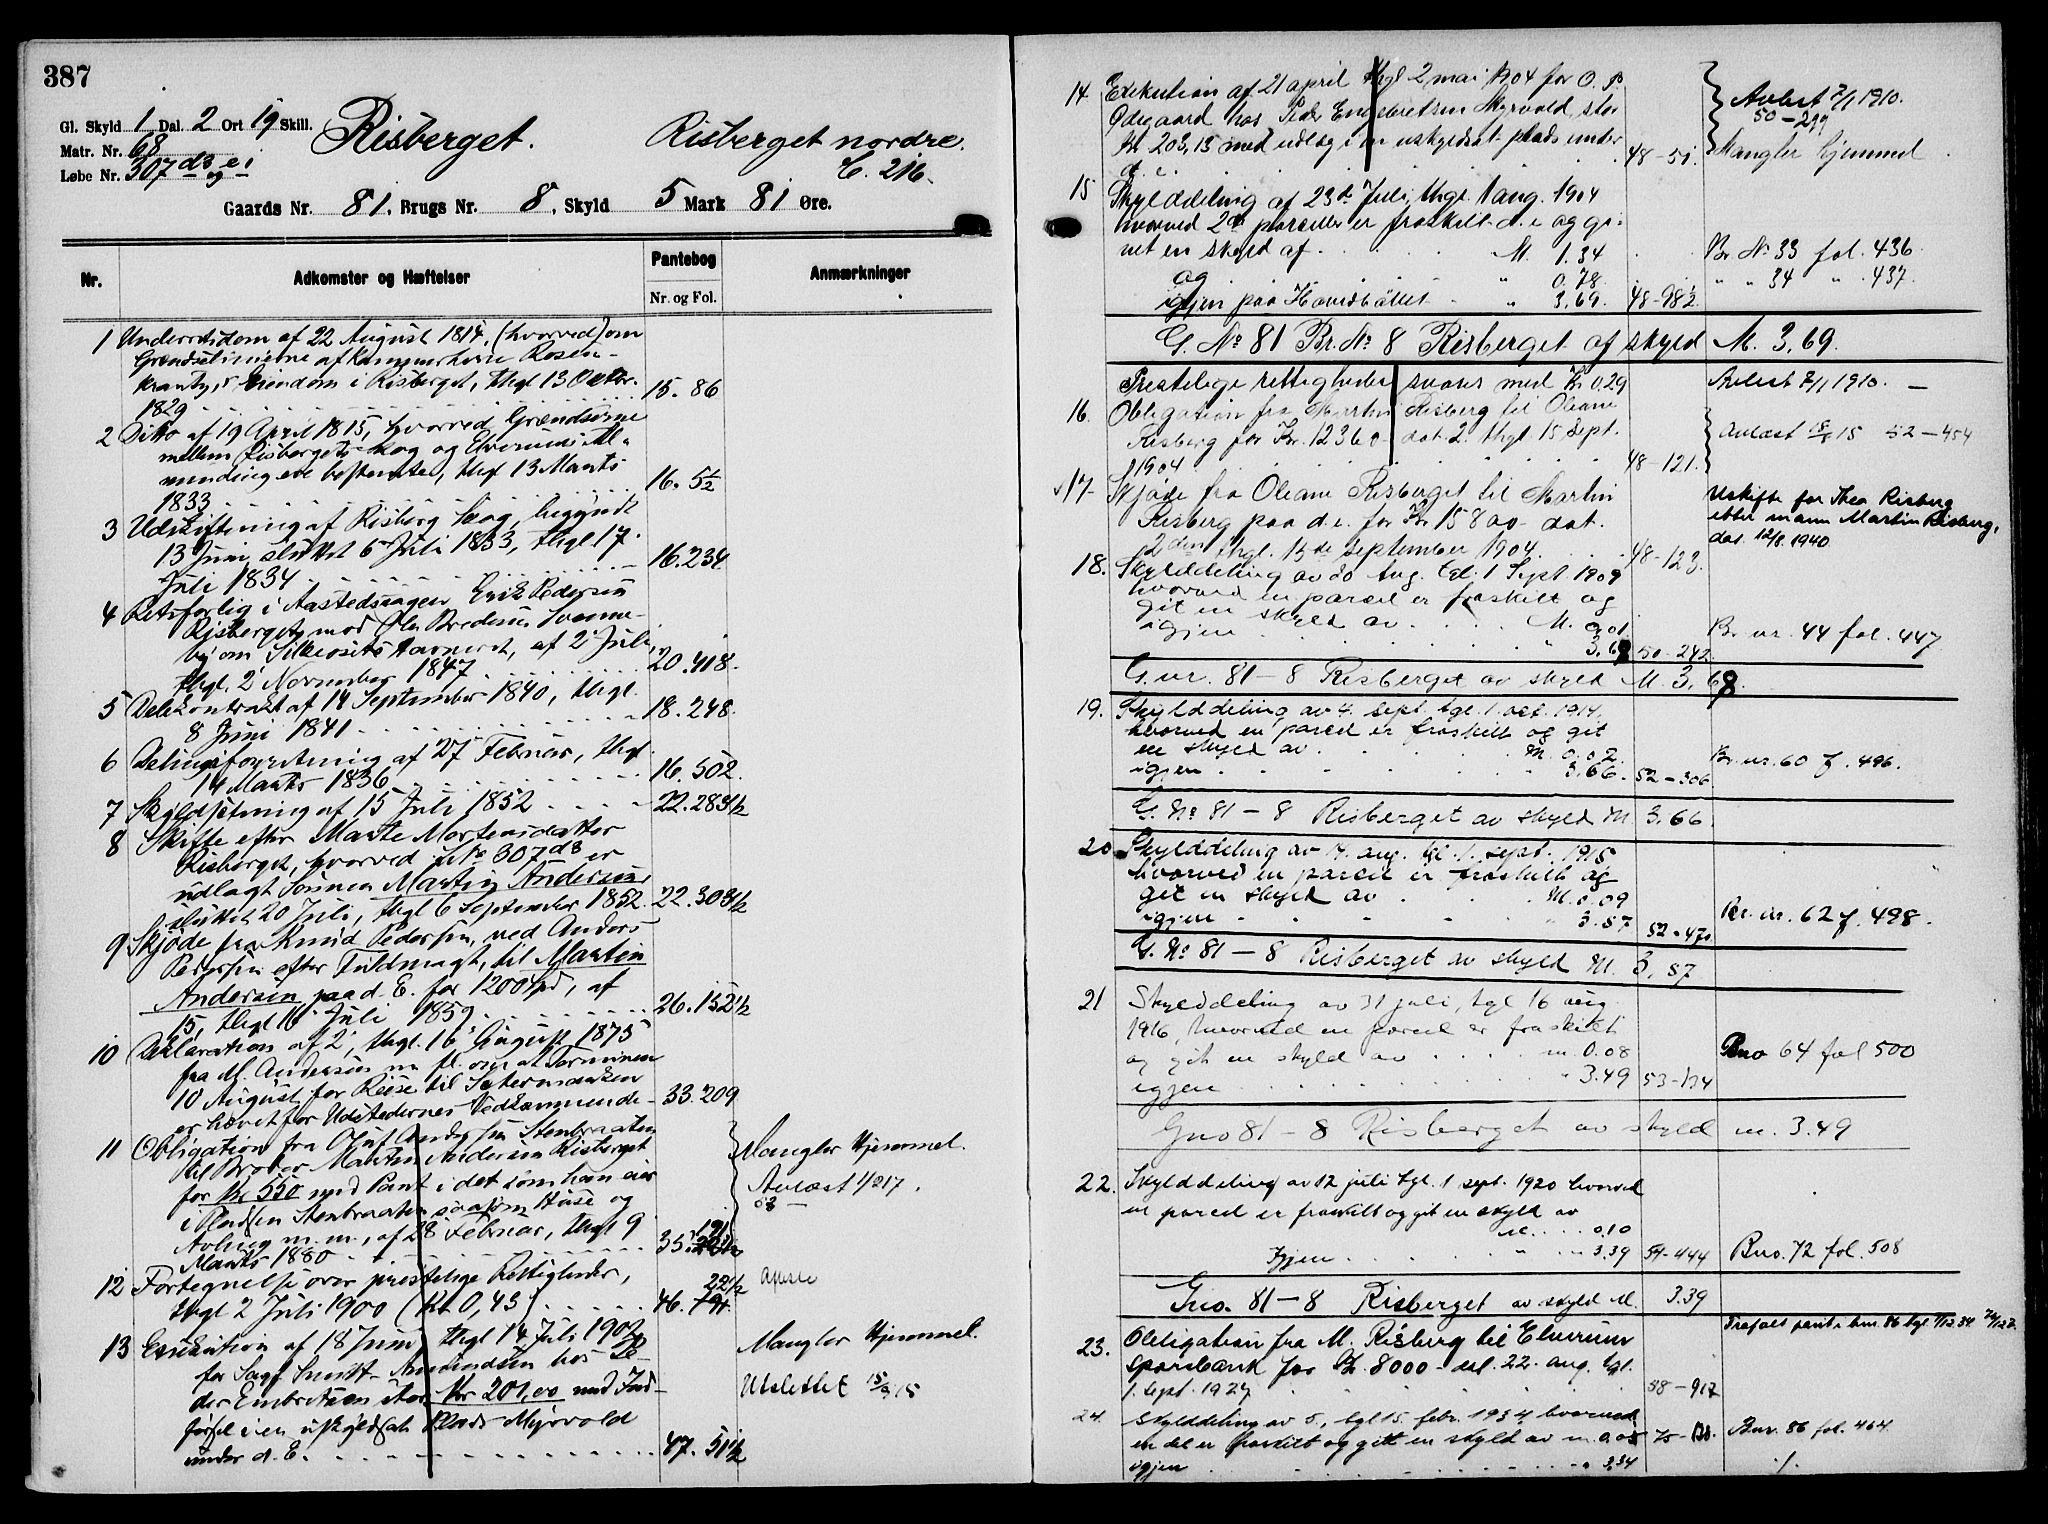 387
Gl. Skyld 1 Dal. 2 Ort 19 Skill.
Matr. Nr. 68
Løbe Nr. 307 d3 og e i
Risberget.
Risberget nordre.
C. 216.
Gaards Nr. 81, Brugs Nr. 8, Skyld 5 Mark 81 Øre.
Nr. Adkomster og Hæftelser Pantebog Anmærkninger
Nr. og Fol.
1 Underretsdom af 22 August 1814, (hvorved) om
Grændselinierne af Kammerherre Rosen-
krantz's Eiendom i Risberget, thgl 13 Oktbr.
1829 15. 86
2 Ditto af 19 April 1815, hvorved Grændserne
mellem Risbergets Skog og Elverums Al-
minding ere bestemte, thgl 13 Marts
1833 16. 5 1/2
3 Udskiftning af Risberg Skog, begyndt
13 Juni, sluttet 6 Juli 1833, thgl 17
Juli 1834 16. 234
4 Retsforlig i Aastedssagen Erik Pedersen
Risberget mod Ole Bredesen Svenne-
by om af 2 Juli,
thgl. 2 November 1847 20. 418.
5 Delekontrakt af 14 September 1840, thgl.
8 Juni 1841 18. 248.
6 Delingsforretning af 27 Februar, thgl
14 Marts 1836 16. 502.
7 Skyldsætning af 15 Juli 1852 22. 283 1/2
8 Skifte efter Marte Mortensdatter
Risberget, hvorved L. No 307 d3 er
udlagt Sønnen Martin Andersen,
sluttet 20 Juli, thgl 6 September 1852. 22. 303 1/2
9 Skjøde fra Knud Pedersen, ved Anders
Pedersen efter Fuldmagt, til Martin
Andersen paa d. E. for 1200 Spd, af
15, thgl 16 Juli 1859 26. 152 1/2
10 Deklaration af 2, thgl. 16 August 1875
fra M. Andersen m fl. om at Terminen
10 August for Reise til Sætermarken
er hævet for Udstedernes Vedkommende 33. 209
11 Obligation fra Oluf Andersen Stenbraaten
til Broder Martin Andersen Risberget
for Kr 550 med Pant i det som han eier
i Pladsen Stenbraaten saasom Huse og
Avling m. m., af 28 Februar, thgl 9
Marts 1880 35. 191
Mangler Hjemmel.
Avlæst 1/2 17.
53 —
12 Fortegnelse over prestelige Rettigheder,
thgl 2 Juli 1900 (Kr 0,43) 46. 22 1/2
13 Exekution af 18 Juni, thgl 14 Juli 1902
for Sagf. Smitt-Amundsen hos Pe-
der Embretsen stor Kr 201,00 med Ind-
førsel i en uskyldsat Plads Myrvold
under d. E. 47. 51 1/2
Mangler Hjemmel.
Utslettet 15/9 15
14 Exekution af 21 april thgl 2 mai 1904 for O. P.
Ødegaard hos Peder Engebretsen Myrvold, stor
Kr. 203,13 med udlæg i en uskyldsat plads under
d. e. 48-51
Avlæst 7/1 1910.
50-299
Mangler hjemmel
15 Skylddeling af 23de Juli, thgl. 1 aug. 1904
hvorved 2de parceller er fraskilt d. e og gi-
vet en skyld af M. 1.34 Br. No 33 fol. 436.
og " 0.78. " " 34 " 437.
igjen paa Hovedbøllet " 3.69. 48-98 1/2
G. No 81 Br. No 8 Risberget af skyld M. 3.69.
Prestelige rettigheder svares med Kr 0,29 Avlæst 7/1 1910. —
16. Obligation fra Martin Risberg til Oleane
Risberg for Kr. 12360- dat. 2. thgl. 15 Sept.
1904 48-121. Avlæst 15/5 15 52-454
17 Skjøde fra Oleane Risberget til Martin
Risberg paa d. e. for Kr 15800- dat.
2den thgl. 15de september 1904. 48-123.
Uskifte for Thea Risberg
etter mann Martin Risberg,
dat. 12/8. 1940
18. Skylddeling av 20 Aug. tgl. 1 Sept 1909
hvorved en parcel er fraskilt og
git en skyld av M. 0.01 Br. nr. 44 fol. 447
igjen " 3.68 50-242
G. nr. 81-8 Risberget av skyld M. 3.68.
19. Skylddeling av 4. sept. tgl. 1. oct. 1914.
hvorved en parcel er fraskilt og git
en skyld av M. 0.02 Br. nr. 60 f. 496.
igjen " 3.66. 52-306
G. No 81-8 Risberget av skyld M 3.66.
20 Skylddeling av 14. aug. tgl. 1. sept. 1915
hvorved en parcel er fraskilt og
git en skyld av M. 0.09 Br. nr. 62 f. 498.
igjen " 3.57 52-470
G. No 81-8 Risberget av skyld M. 3,57
21 Skylddeling av 31 juli, tgl 16 aug.
1916, hvorved en parcel er fraskilt
og git en skyld av m. 0.08 Bno 64 fol 500
igjen " 3.49 53-134
Gno 81-8 Risberget av skyld m. 3.49
22. Skylddeling av 12 juli tgl. 1 sept. 1920 hvorved
en parcel er fraskilt og git en skyld av
M. 0.10
Igjen " 3.39 54-444 Bno. 72 fol. 508
Gno. 81-8 Risberget av skyld M. 3.39
23. Obligation fra M. Risberg til Elverum
sparebank for Kr. 8000- ut. 22. aug. tgl.
1. sept. 1927 58-917
Frafalt pant i bnr. 86 tgl.
24. Skylddeling av 5., tgl 15. febr. 1934 hvorved
en del er fraskilt og gitt en skyld av m. 0.05 Bnr. 86 fol. 464.
igjen " 3.34 ./.